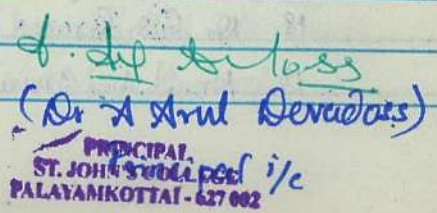 (Dr A Arul Devadoss)
Principal i/c
PRINCIPAL
ST. JOHN'S COLLEGE
PALAYAMKOTTAI - 627 002